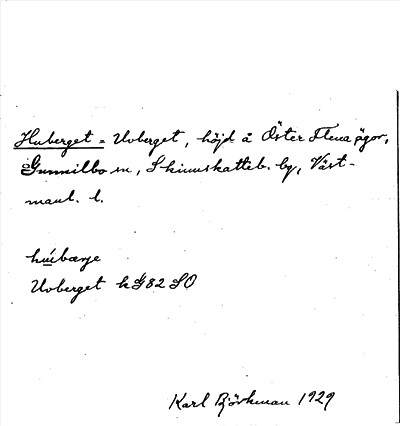 Huberget = Uvberget, höjd å Öster Flena ägor,
Gunnilbo sn, Skinnskatteb. bg, Väst-
manl. l.
húːbærje
Uvberget hG 82 SO
Karl Björkman 1929